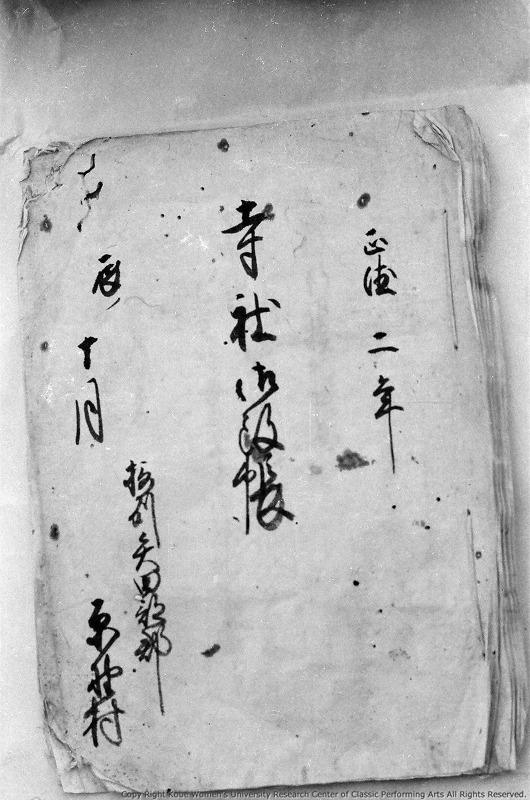 正徳二年
寺社御改帳
辰十月
摂州矢田部郡
原野村
Copy Right Kobe Women's University Research Center of Classic Performing Arts All Rights Reserved.